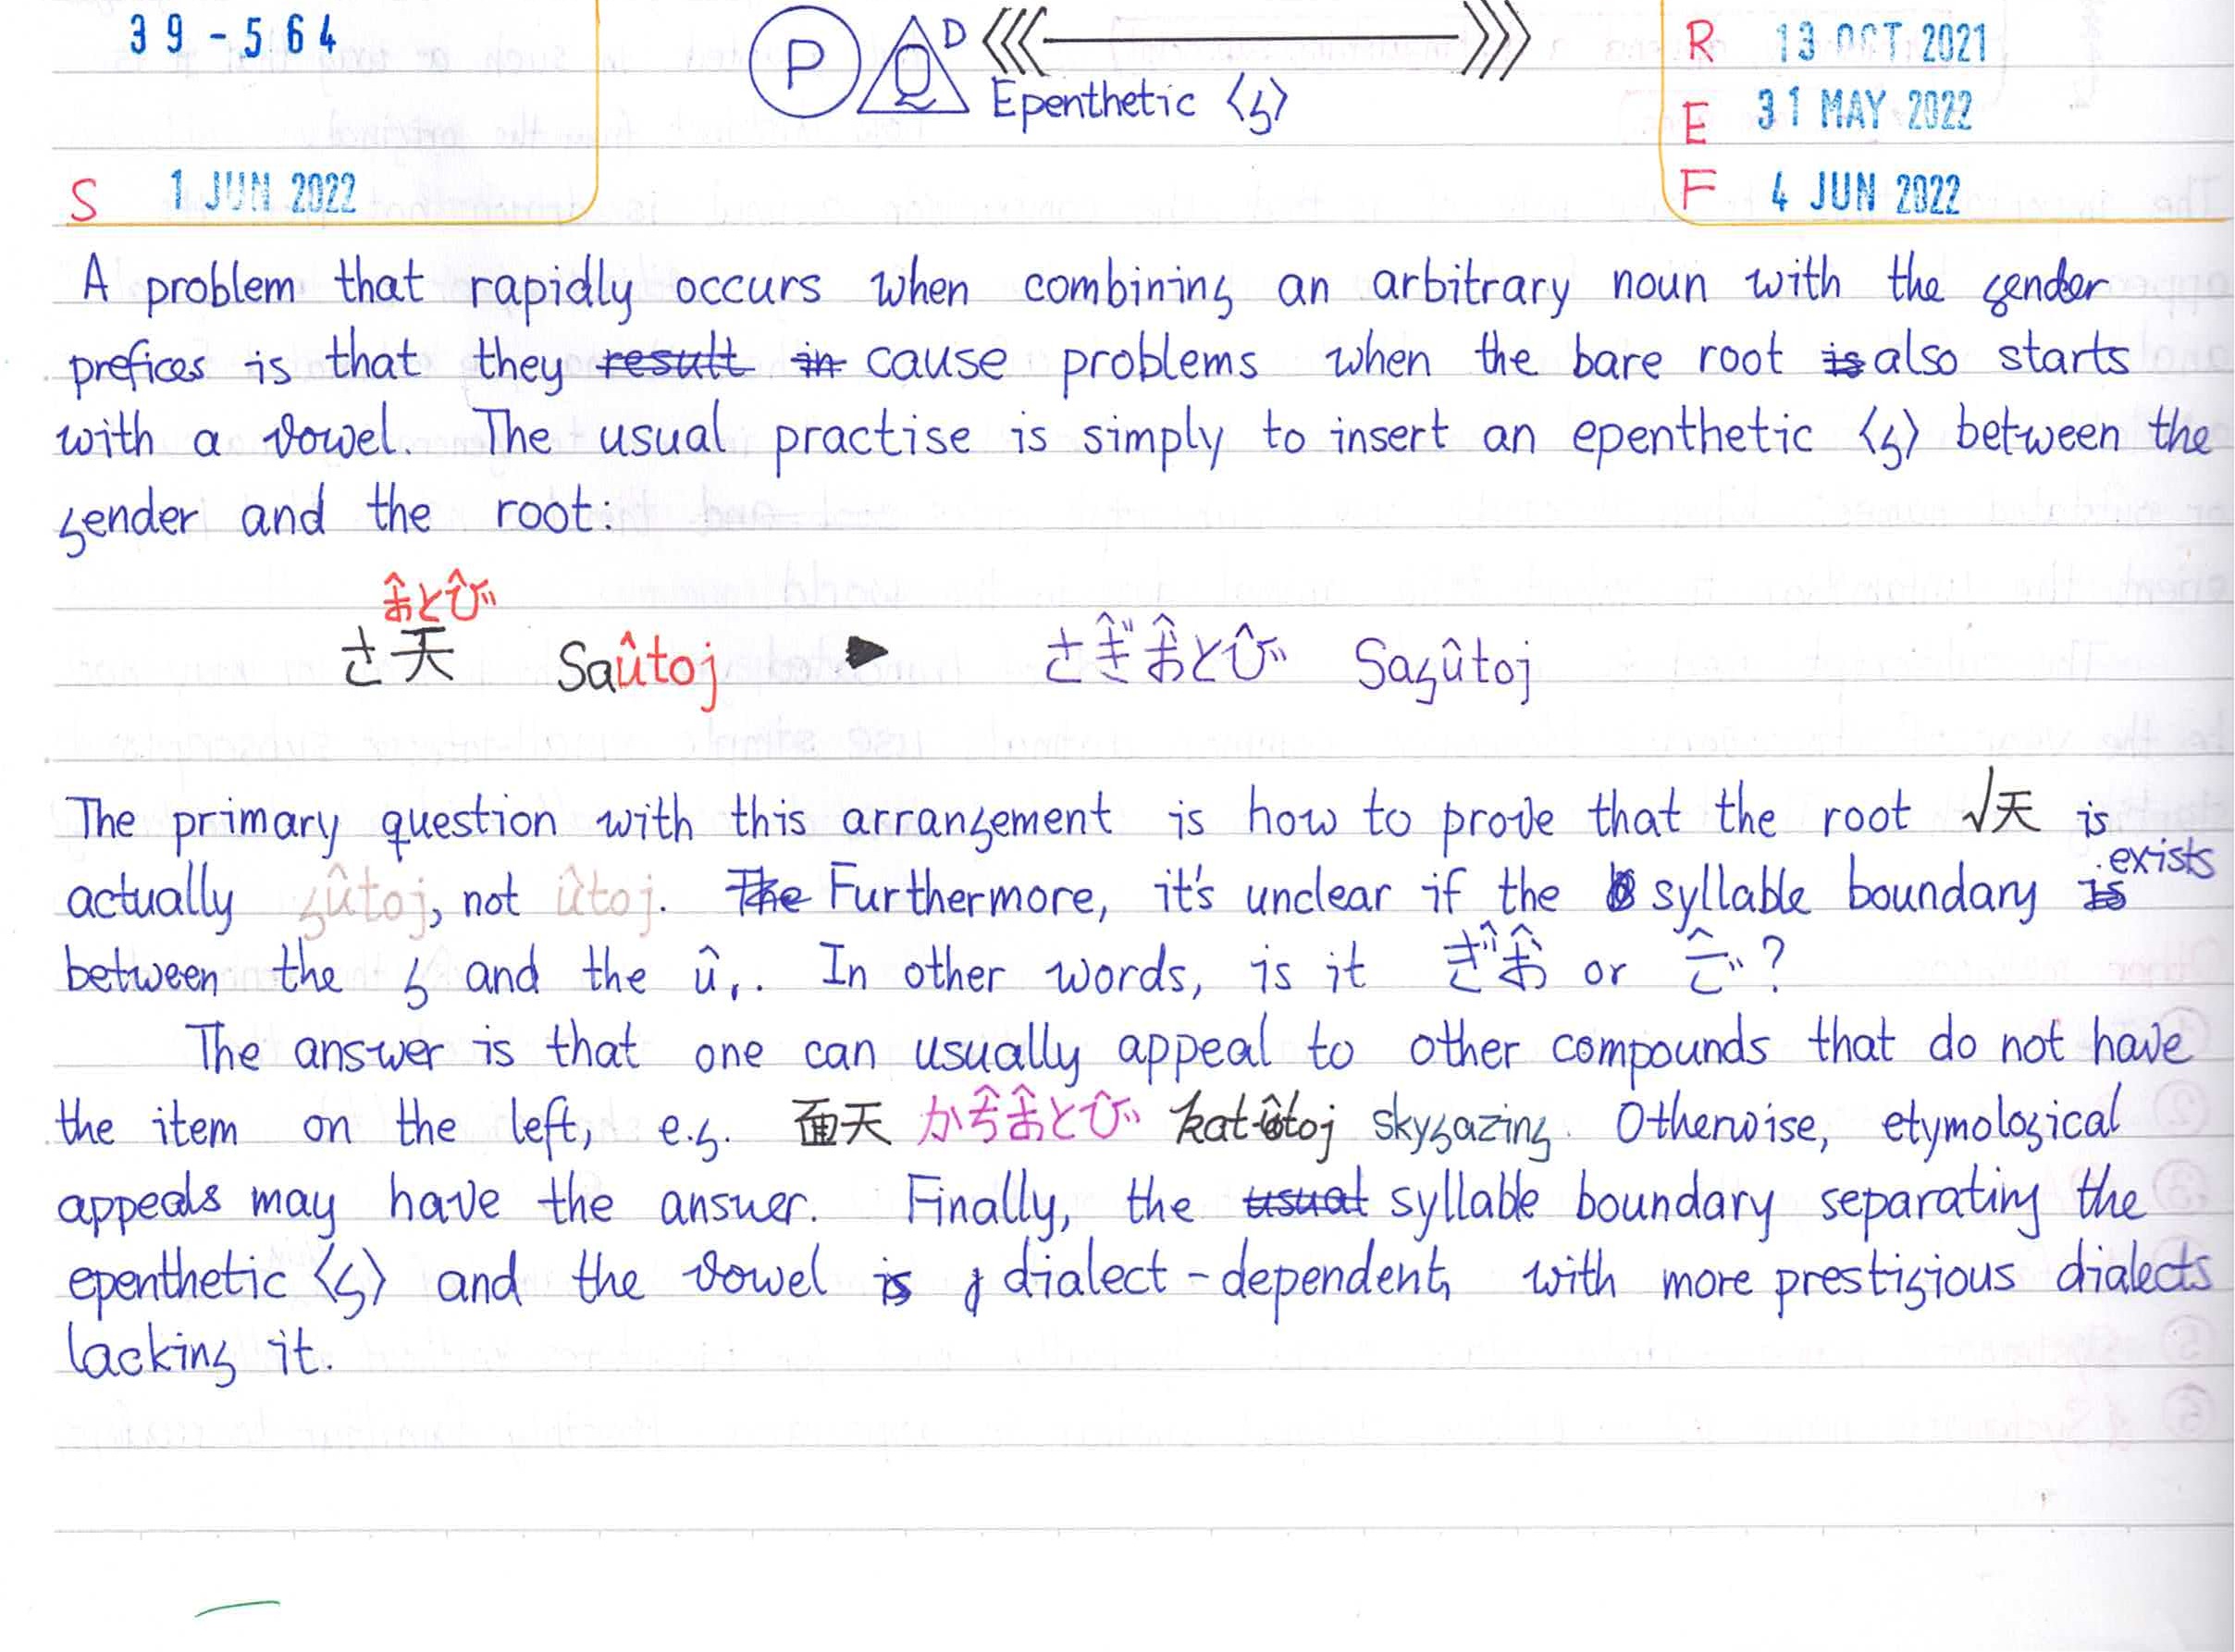 39-564
P D
Epenthetic ⟨g⟩
R 13 OCT 2021
E 31 MAY 2022
F 4 JUN 2022
S 1 JUN 2022
A problem that rapidly occurs when combining an arbitrary noun with the gender
prefices is that they result in cause problems when the bare root is also starts
with a vowel. The usual practise is simply to insert an epenthetic ⟨g⟩ between the
gender and the root:
お̂とび̂
さ天 Saûtoj ▶ さぎ̂お̂とび̂ Sagûtoj
The primary question with this arrangement is how to prove that the root √天 is
actually gûtoj, not ûtoj. The Furthermore, it's unclear if the syllable boundary is exists
between the g and the û,. In other words, is it ぎ̂お̂ or ご̂?
The answer is that one can usually appeal to other compounds that do not have
the item on the left, e.g. 面天 かち̂お̂とび̂ kat-ûtoj skygazing. Otherwise, etymological
appeals may have the answer. Finally, the usual syllable boundary separating the
epenthetic ⟨g⟩ and the vowel is dialect-dependent, with more prestigious dialects
lacking it.